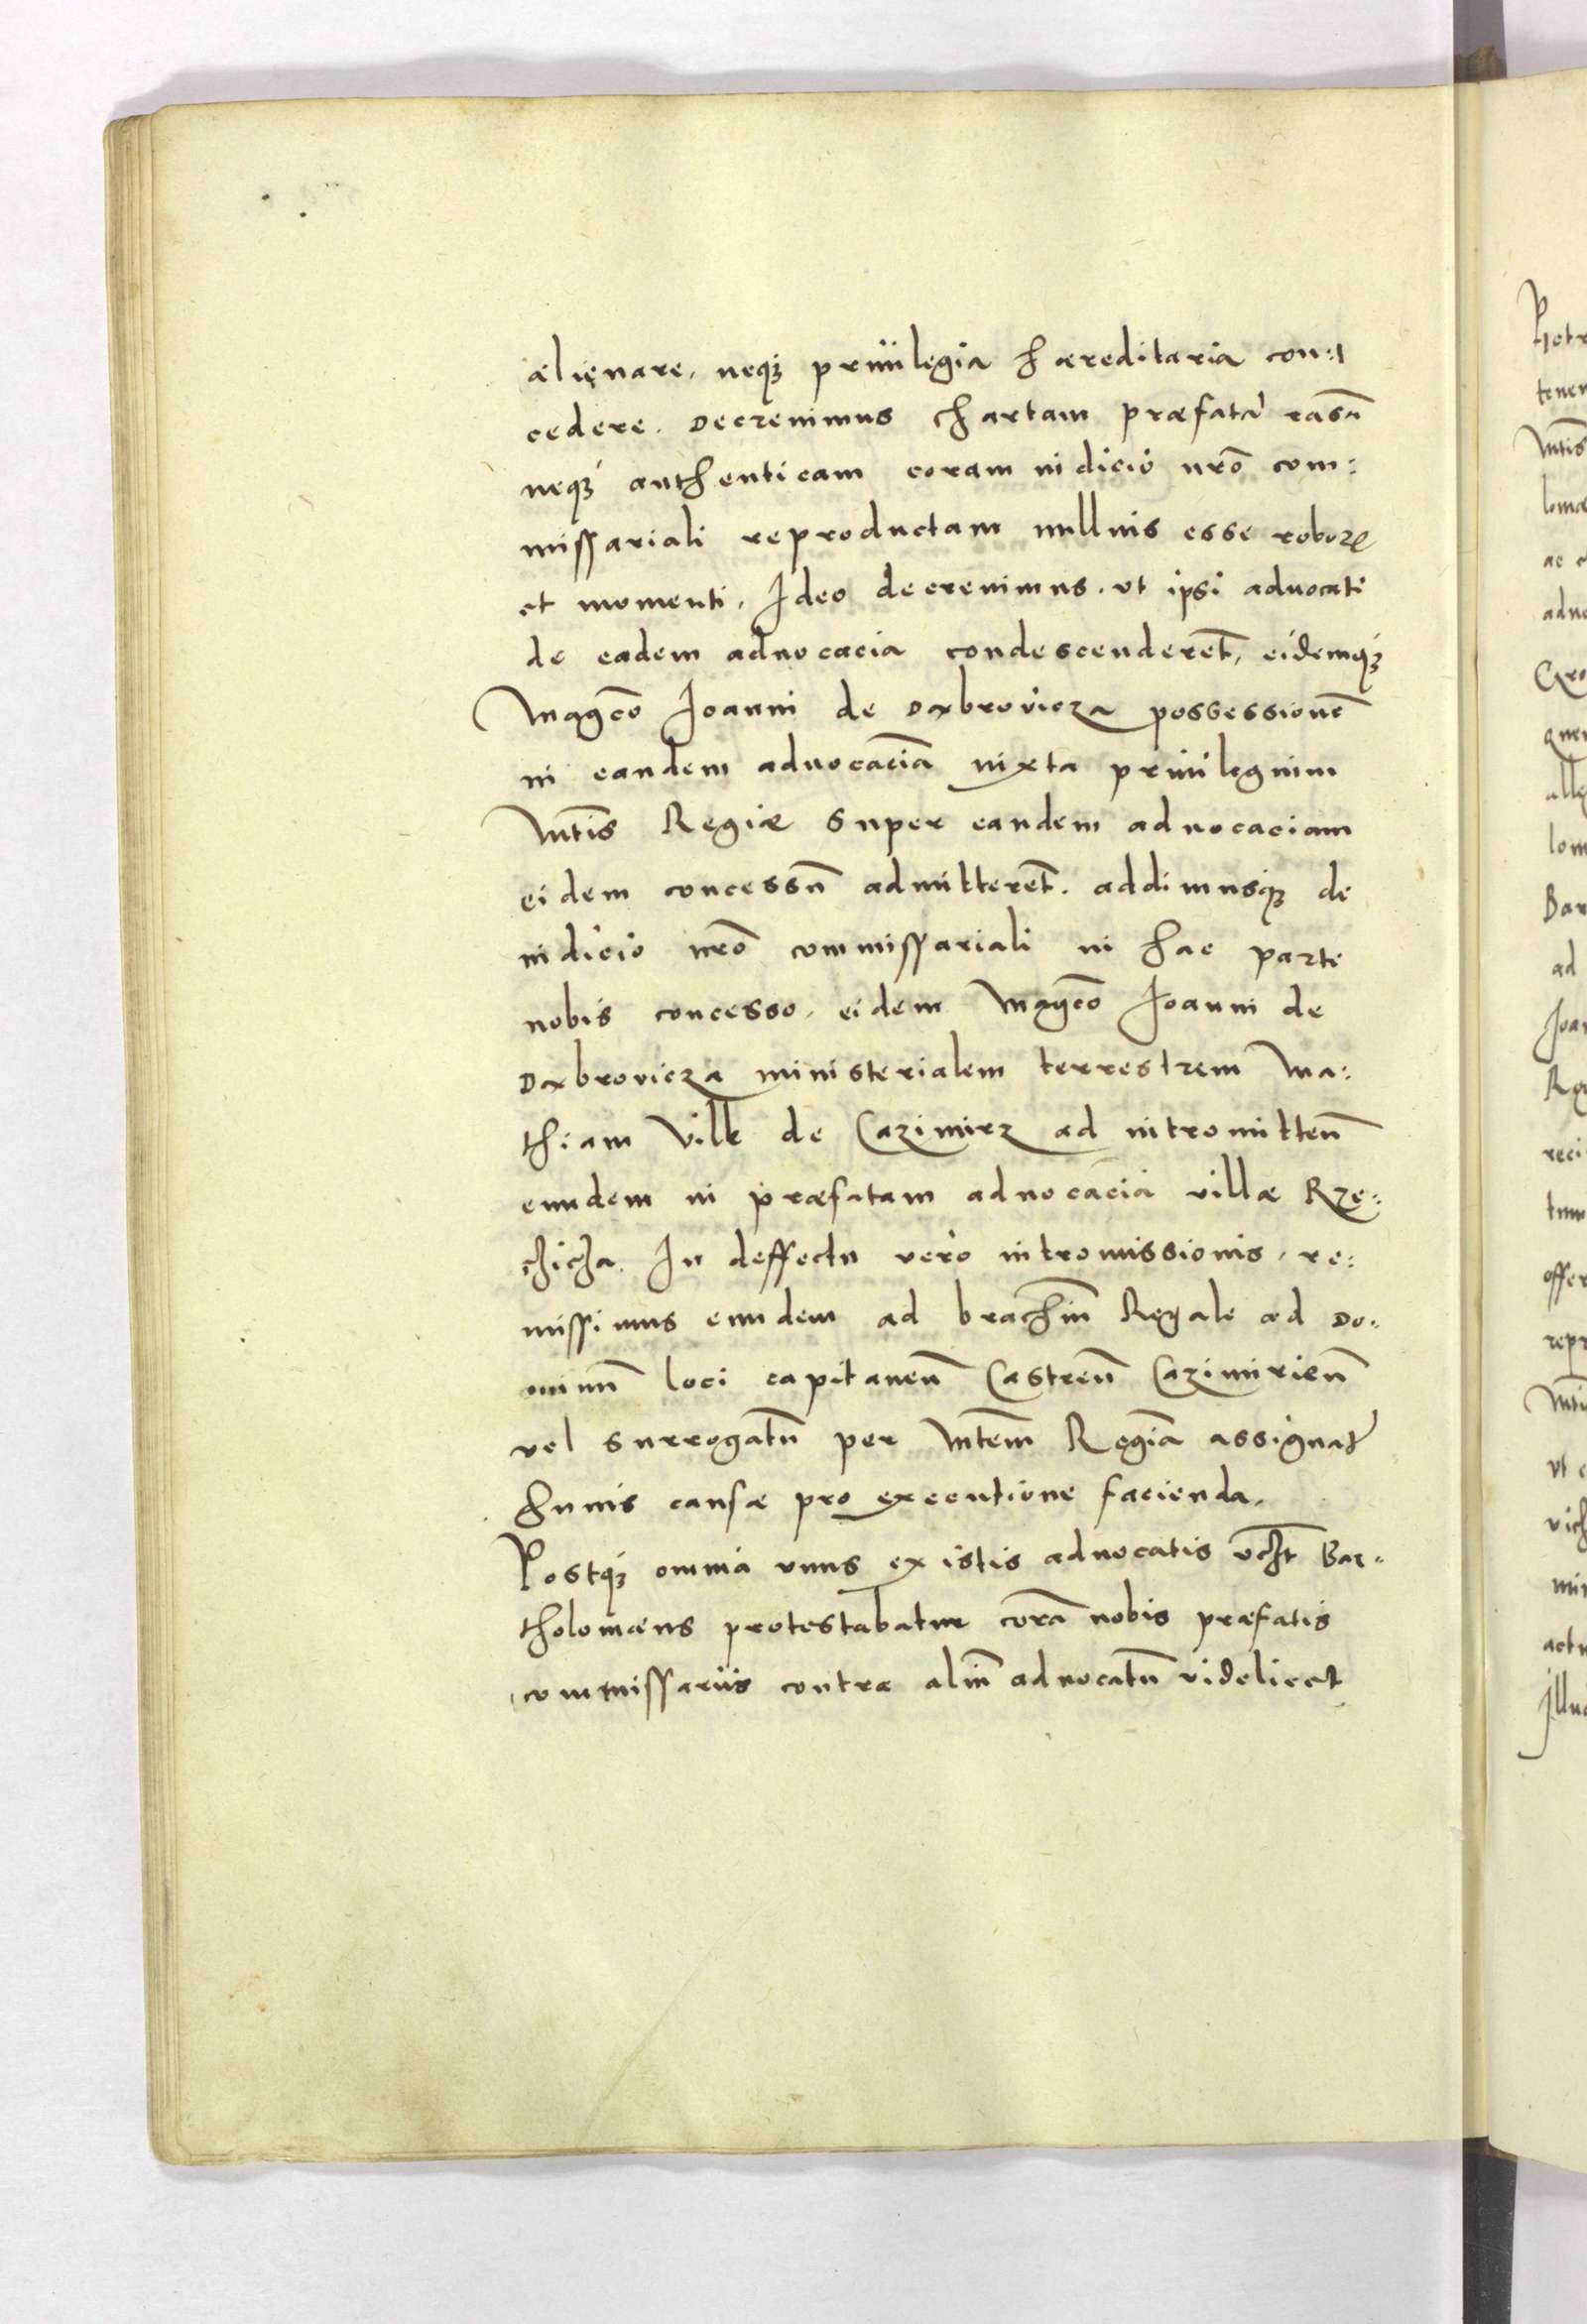 alienare, neq3 priuilegia hæreditaria con:
cedere. Decreuimus chartam præfatā rasā
neq3 authenticam coram iudicio nrō com:
missariali reproductam nullius esse roboris
et momenti. Ideo decreuimus. vt ipsi aduocati
de eadem aduocacia condescenderēt, eidemq3
Magcō Joanni de Dąbrovicza possessionē
in eandem aduocaciā iuxta priuilegium
Mtīs Regiæ super eandem aduocaciam
eidem concessū admitterēt. addimusq3 de
iudicio nrō commissariali in hac parte
nobis concesso, eidem Magcō Joanni de
Dąbrovicza ministerialem terrestrem Ma:
thiam Vilk de Cazimirz ad intromittenn̄
eundem in præfatam aduocaciā villæ Rze:
chicha. In deffectu vero intromissionis, re:
missimus eundem ad brachiū Regale ad Do:
minū loci capitaneū Castren̄ Cazimirien̄
vel surrogatū per Mtēm Regiā assignat
huius causæ pro executione facienda.
Postq3 omnia vnus ex istis aduocatis vcht̄ Bar:
tholomæus protestabatur corā nobis præfatis
commissariis contra aliū aduocatū videlicet
Petr
tenen
Mtīs
loma
ac
aduo
quem
lom
Bar
ad
Joan
Reg
reci
tum
offer
repr
Mti
vt
vich
min
actu
Illu